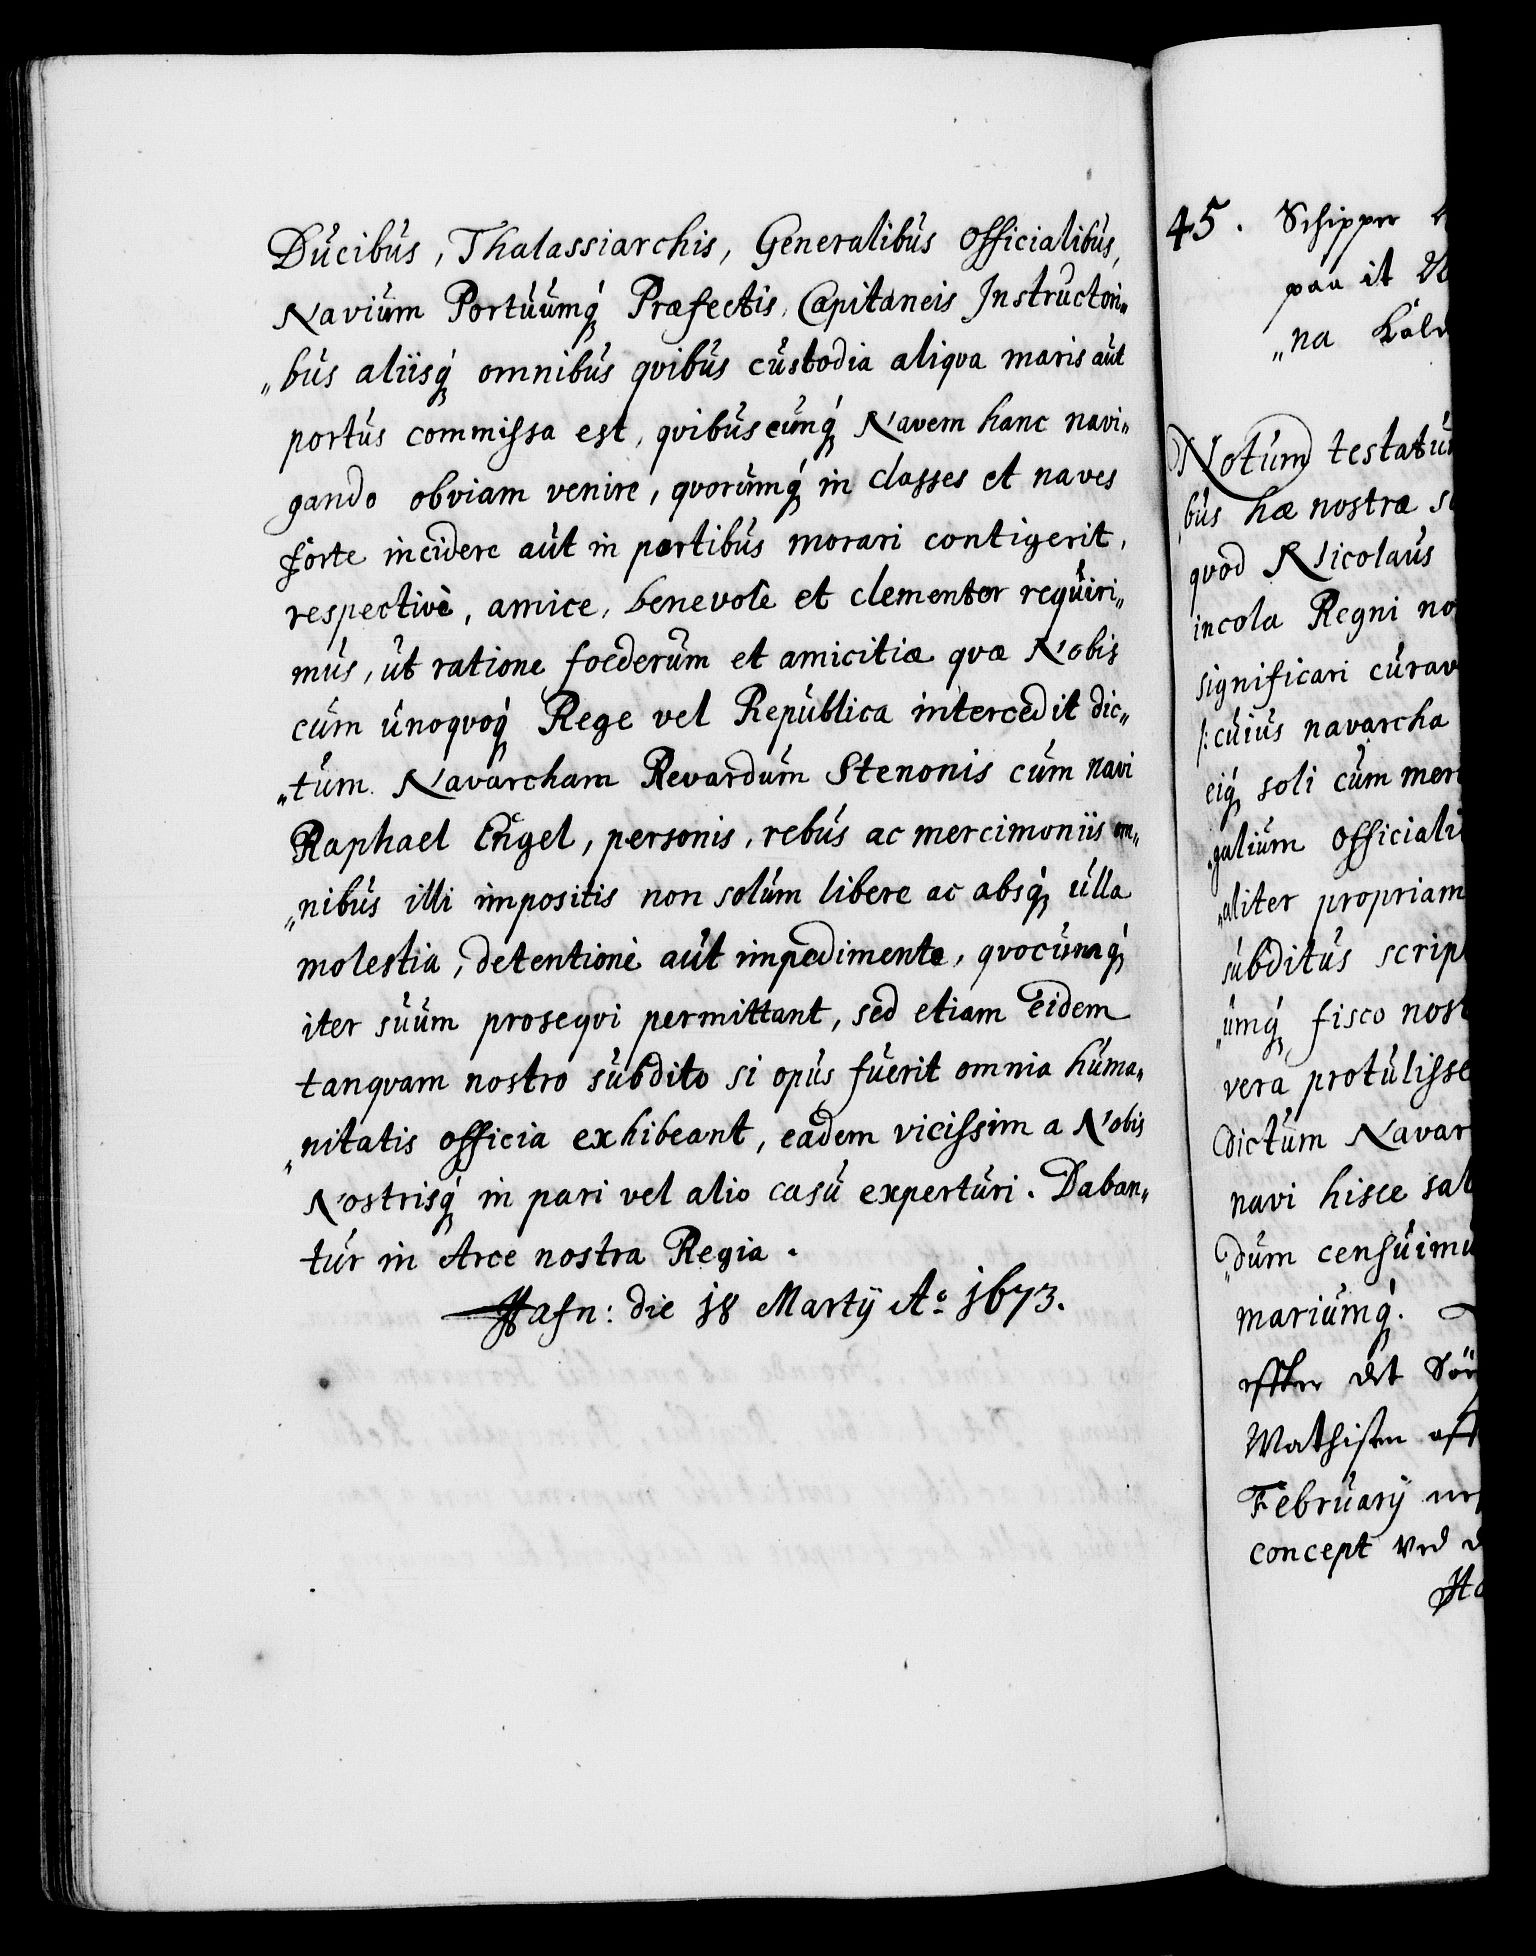 Ducibus, Thalassiarchis, Generalibus Officialibus,
Navium Portuumq́ Præfectis, Capitaneis Instructori„
„bus aliisq́ omnibus qvibus custodia aliqva maris aut
portus commissa est, qvibuscunq́ Navem hanc navi„
gando obviam venire, qvorumq́ in classes et naves
forte incidere aut in portibus morari contigerit,
respectivè, amice, benevolè et clementer reqviri„
mus, ut ratione foederum et amicitiæ qvæ Nobis
cum unoqvoq́ Rege vel Republica intercedit dic„
„tum Navarcham Revardum Stenonis cum navi
Raphael Engel, personis, rebus ac mercimoniis om„
„nibus illi impositis non solum libere ac absq́ ulla
molestia, detentione aut impedimento, qvocunq́
iter suum proseqvi permittant, sed etiam eidem
tanqvam nostro subdito si opus fuerit omnia huma„
„nitatis officia exhibeant, eadem vicissim a Nobis
Nostrisq́ in pari vel alio casu experturi. Daban„
tur in Arce nostra Regia.
Hafn: die 18 Martij Ao 1673.
45. Schipper
paa it
„na
Notum testatu
bus hæ nostræ
qvod Nicolaus
incola Regni no
significari curav
/: cuius navarcha
eiq́ soli cum mer
„galium Officiali
„aliter propriam
subditus scrip
„umq́ fisco nost
vera protulisse
dictum Navar
navi hisce sal
„dum censuimu
mariumq́.
effter det
Mathisen aff
Februarij
concept ved d
Ha